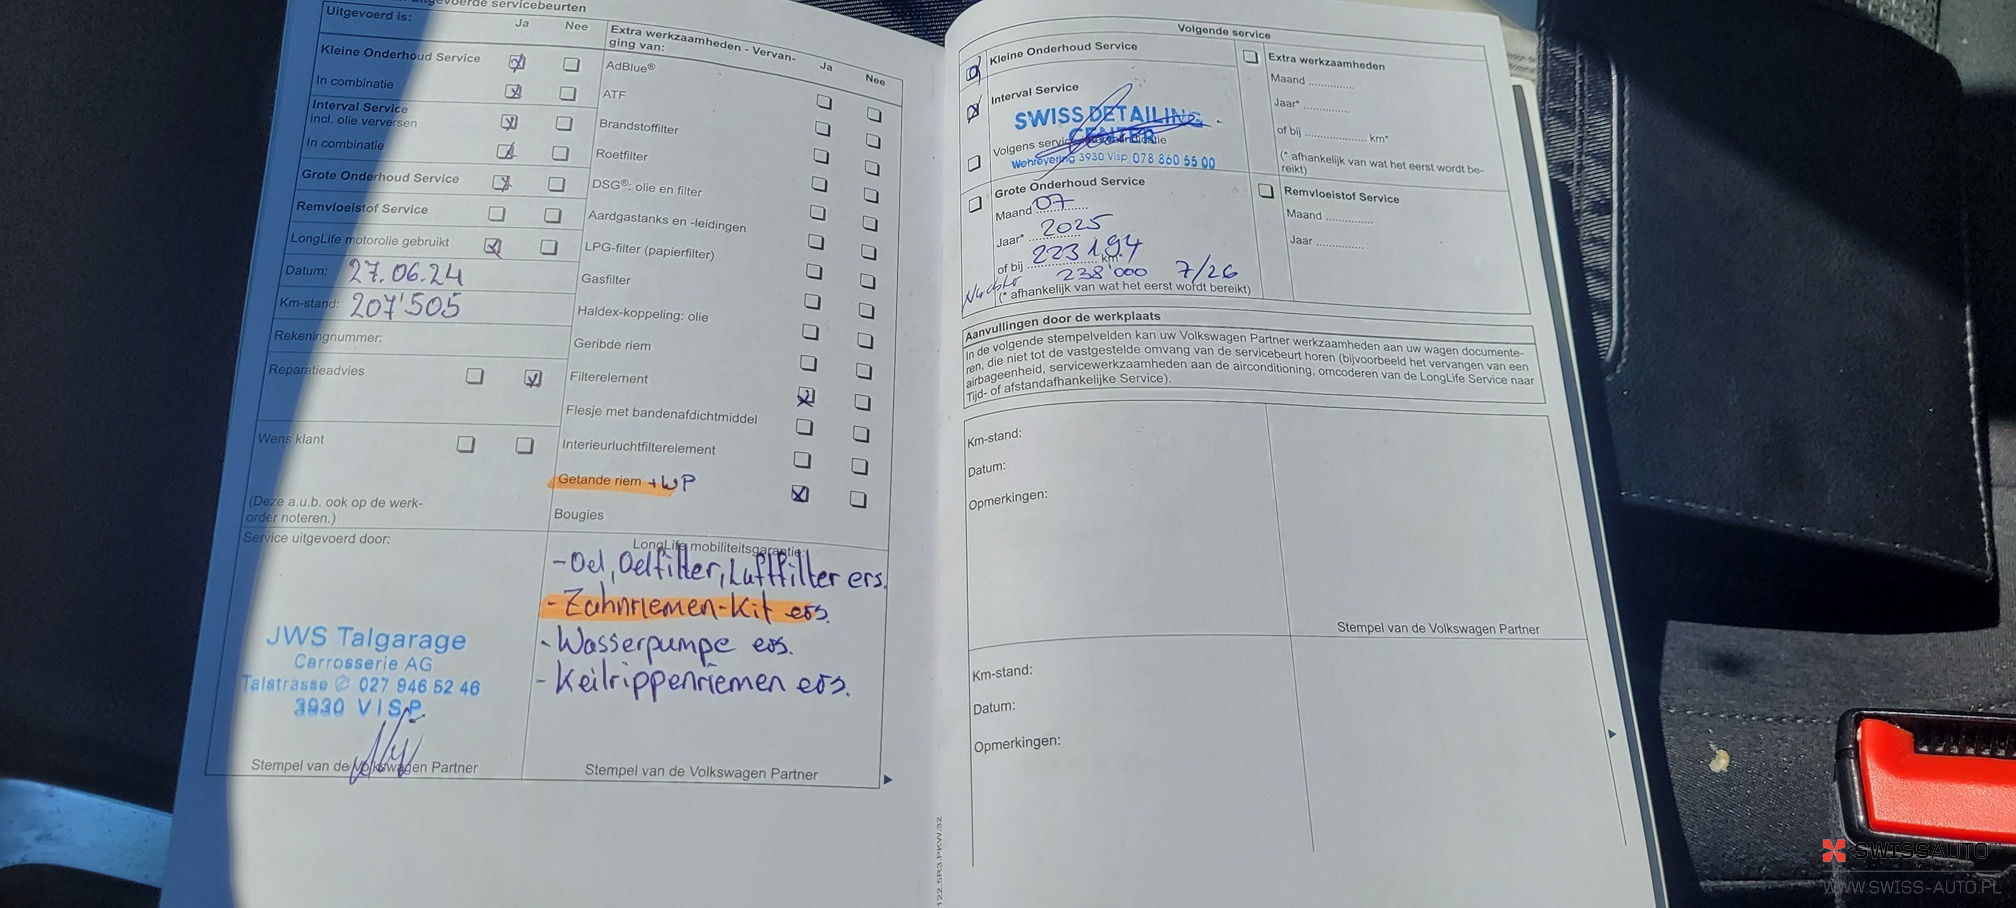 servicebeurten
Uitgevoerd is:
Ja
Nee
Kleine Onderhoud Service
In combinatie
Interval Service
incl. olie verversen
In combinatie
Grote Onderhoud Service
Remvloeistof Service
LongLife motorolie gebruikt
Datum: 27.06.24
Km-stand: 207'505
Rekeningnummer:
Reparatieadvies
Wens klant
(Deze a.u.b. ook op de werk-
order noteren.)
Service uitgevoerd door:
JWS Talgarage
Carrosserie AG
Talstrasse ✆ 027 946 52 46
3930 VISP
Stempel van de Volkswagen Partner
Extra werkzaamheden - Vervan-
ging van:
Ja
Nee
AdBlue®
ATF
Brandstoffilter
Roetfilter
DSG®: olie en filter
Aardgastanks en -leidingen
LPG-filter (papierfilter)
Gasfilter
Haldex-koppeling: olie
Geribde riem
Filterelement
Flesje met bandenafdichtmiddel
Interieurluchtfilterelement
Getande riem +WP
Bougies
LongLife mobiliteitsgarantie:
- Oel, Oelfilter, Luftfilter ers.
- Zahnriemen-Kit ers.
- Wasserpumpe ers.
- Keilrippenriemen ers.
Stempel van de Volkswagen Partner
122.5R3.PKW.32
Volgende service
Kleine Onderhoud Service
Interval Service
SWISS DETAILING
CENTER
Volgens
Wehreyering 3930 Visp 078 860 55 00
Grote Onderhoud Service
Maand 07
Jaar* 2025
of bij 223194 km*
238'000 7/26
(* afhankelijk van wat het eerst wordt bereikt)
Extra werkzaamheden
Maand ...............
Jaar* ...............
of bij .................... km*
(* afhankelijk van wat het eerst wordt be-
reikt)
Remvloeistof Service
Maand ...............
Jaar ...............
Aanvullingen door de werkplaats
In de volgende stempelvelden kan uw Volkswagen Partner werkzaamheden aan uw wagen documente-
ren, die niet tot de vastgestelde omvang van de servicebeurt horen (bijvoorbeeld het vervangen van een
airbageenheid, servicewerkzaamheden aan de airconditioning, omcoderen van de LongLife Service naar
Tijd- of afstandafhankelijke Service).
Km-stand:
Datum:
Opmerkingen:
Stempel van de Volkswagen Partner
Km-stand:
Datum:
Opmerkingen:
SWISSAUTO
WWW.SWISS-AUTO.PL